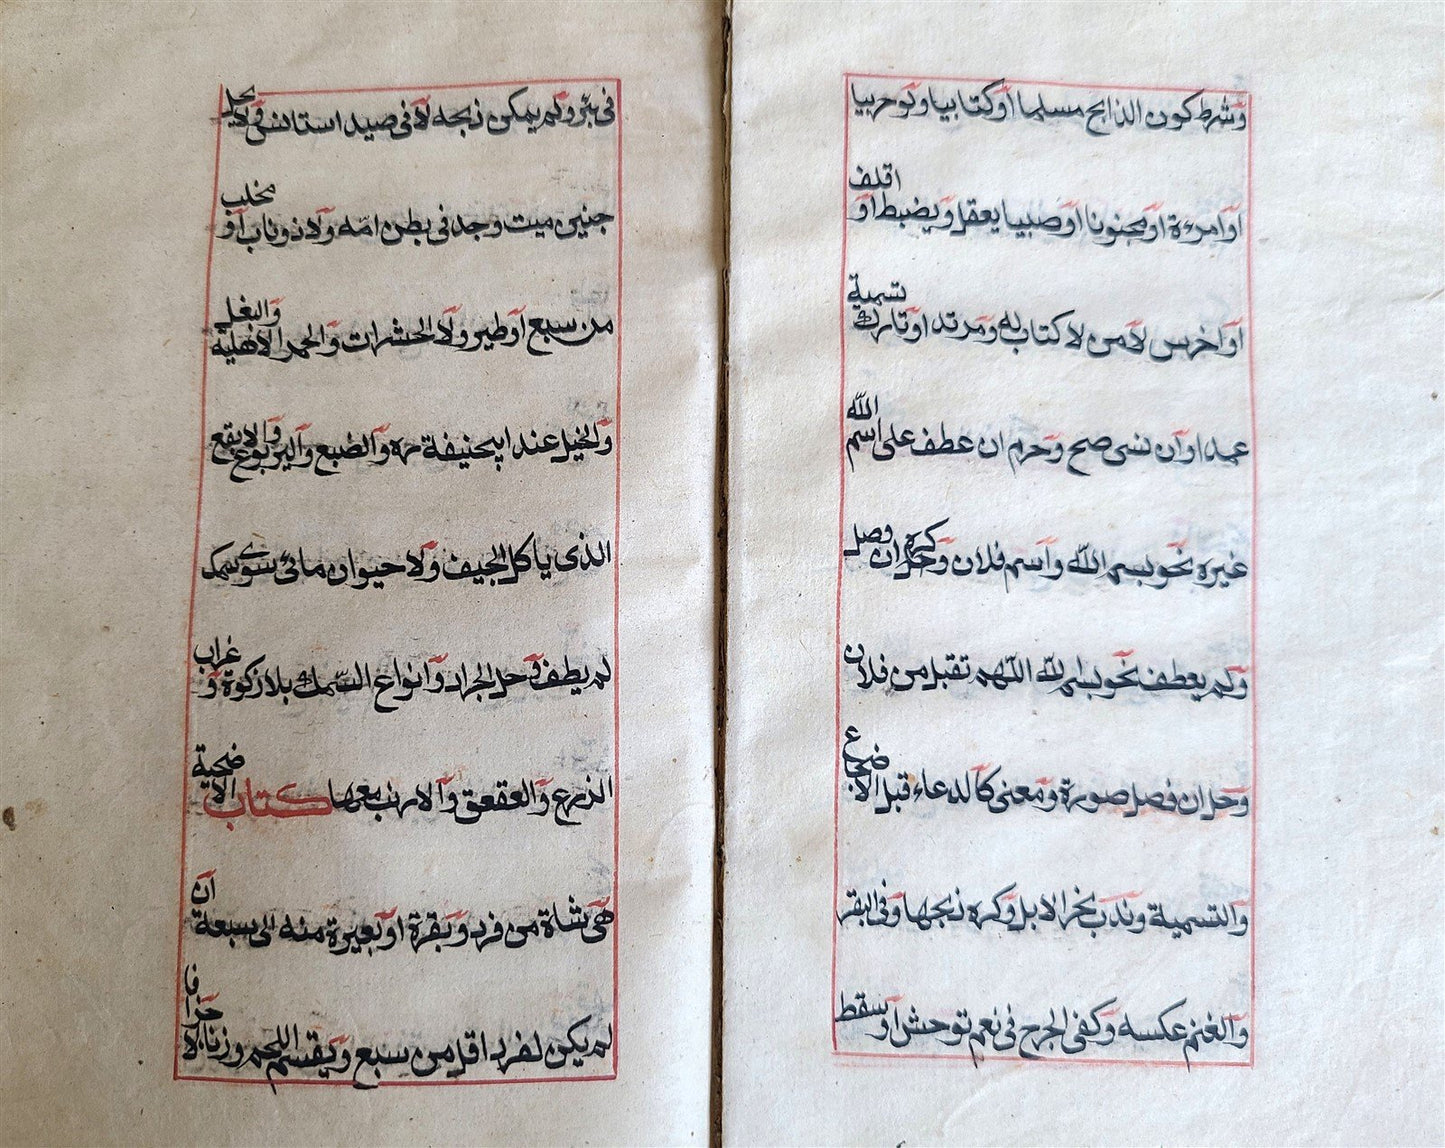 وشرط كون الذابح مسلما او كتابيا ولو حربيا
او امرءة او مجنونا او صبيا يعقل ويضبط او اقلف
او اخرس لا من لا كتاب له ومرتد او تارك تسمية
عمدا وان نسى صح وحرم ان عطف على اسم الله
غيره نحو بسم الله واسم فلان وكره ان وصل
ولم يعطف نحو بسم الله اللهم تقبل من فلان
وحل ان فصل صورة ومعنى كالدعاء قبل الاضجاع
والتسمية وندب نحر الابل وكره ذبحها وفى البقر
والغنم عكسه وكفى الجرح فى نعم توحش او سقط
فى بئر ولم يمكن ذبحه لا فى صيد استانس ولا يحل
جنين ميت وجد فى بطن امه ولا ذو ناب او مخلب
من سبع او طير ولا الحشرات والحمر الاهلية والبغل
والخيل عند ابيحنيفة ره والضبع واليربوع والابقع
الذى ياكل الجيف ولا حيوان مائى سوى سمك
لم يطف وحل الجراد وانواع السمك بلا زكوة و غراب
الزرع والعقعق والارنب معها كتاب الاضحية
هى شاة من فرد وبقرة او بعيرة منه الى سبعة ان
لم يكن لفرد اقل من سبع ويقسم اللحم وزنا لا جزافا